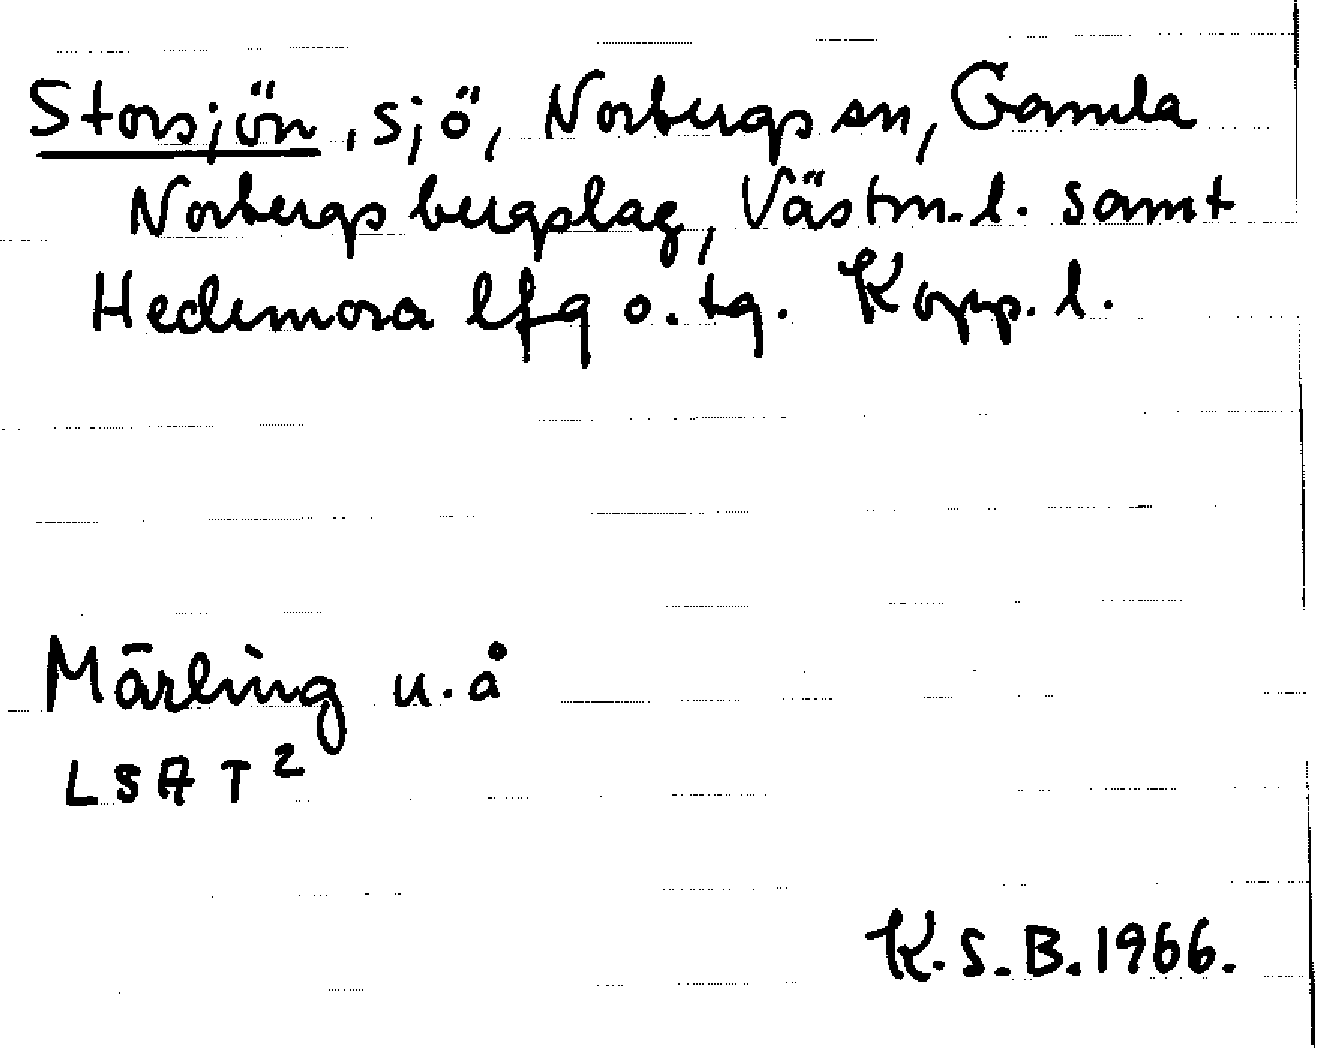 Storsjön, sjö, Norbergs sn, Gamla
Norbergs bergslag, Västm. l. samt
Hedemora lfg o. tg. Kopp. l.
Märling u. å
LSA T²
K. S. B. 1966.